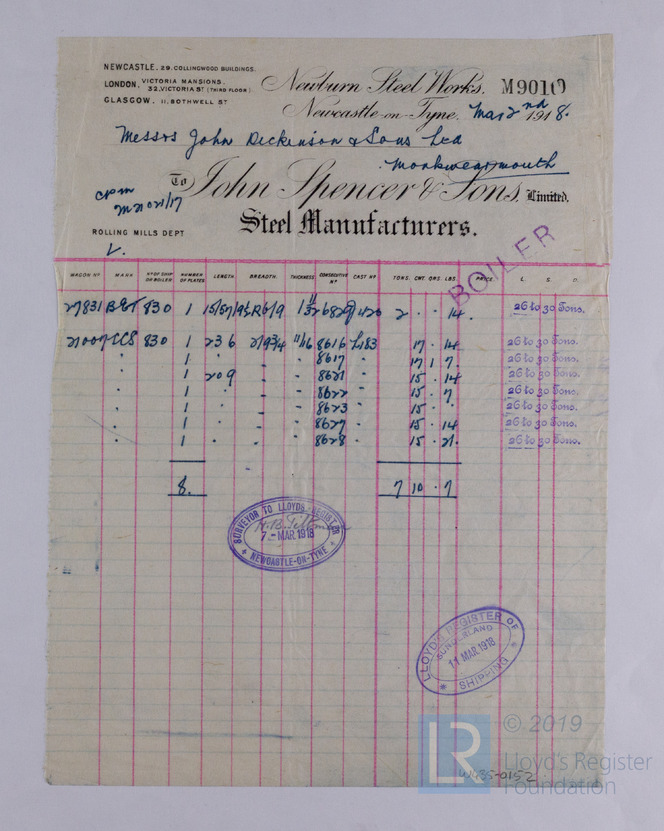 NEWCASTLE. 29. COLLINGWOOD BUILDINGS.
LONDON. VICTORIA MANSIONS.
32, VICTORIA ST (THIRD FLOOR)
GLASGOW. 11. BOTHWELL ST
Newburn Steel Works. M9010
Newcastle-on-Tyne. Mar 2nd 1918.
Messrs John Dickinson & Sons Ltd
Monkwearmouth
To John Spencer & Sons, Limited.
Steel Manufacturers.
ROLLING MILLS DEPT
BOILER
WAGON No MARK No OF SHIP OR BOILER NUMBER OF PLATES LENGTH. BREADTH. THICKNESS CONSECUTIVE No CAST No TONS. CWT. QRS. LBS. PRICE. L. S. D.
27831 B&T 830 1 2 . . 14 . 26 to 30 Tons.
21007 CCS 830 1 23 6 2/9 3/4 11/16 8616 L183 17 . 14 26 to 30 Tons.
" " 1 " " " 8617 " 17 1 7. 26 to 30 Tons.
" " 1 20 9 " " 8621 " 15 . 14 26 to 30 Tons.
" " 1 " " " 8622 " 15 . 7 26 to 30 Tons.
" " 1 " " " 8623 " 15 . . 26 to 30 Tons.
" " 1 " " " 8627 " 15 . 14 26 to 30 Tons.
" " 1 " " " 8628 " 15 . 21. 26 to 30 Tons.
8. 7 10 . 7
SURVEYOR TO LLOYDS REGISTER
7 - MAR 1918
NEWCASTLE-ON-TYNE
LLOYD'S REGISTER OF
SUNDERLAND
11 MAR 1918
SHIPPING
LR © 2019
Lloyd's Register
Foundation
W485-0152